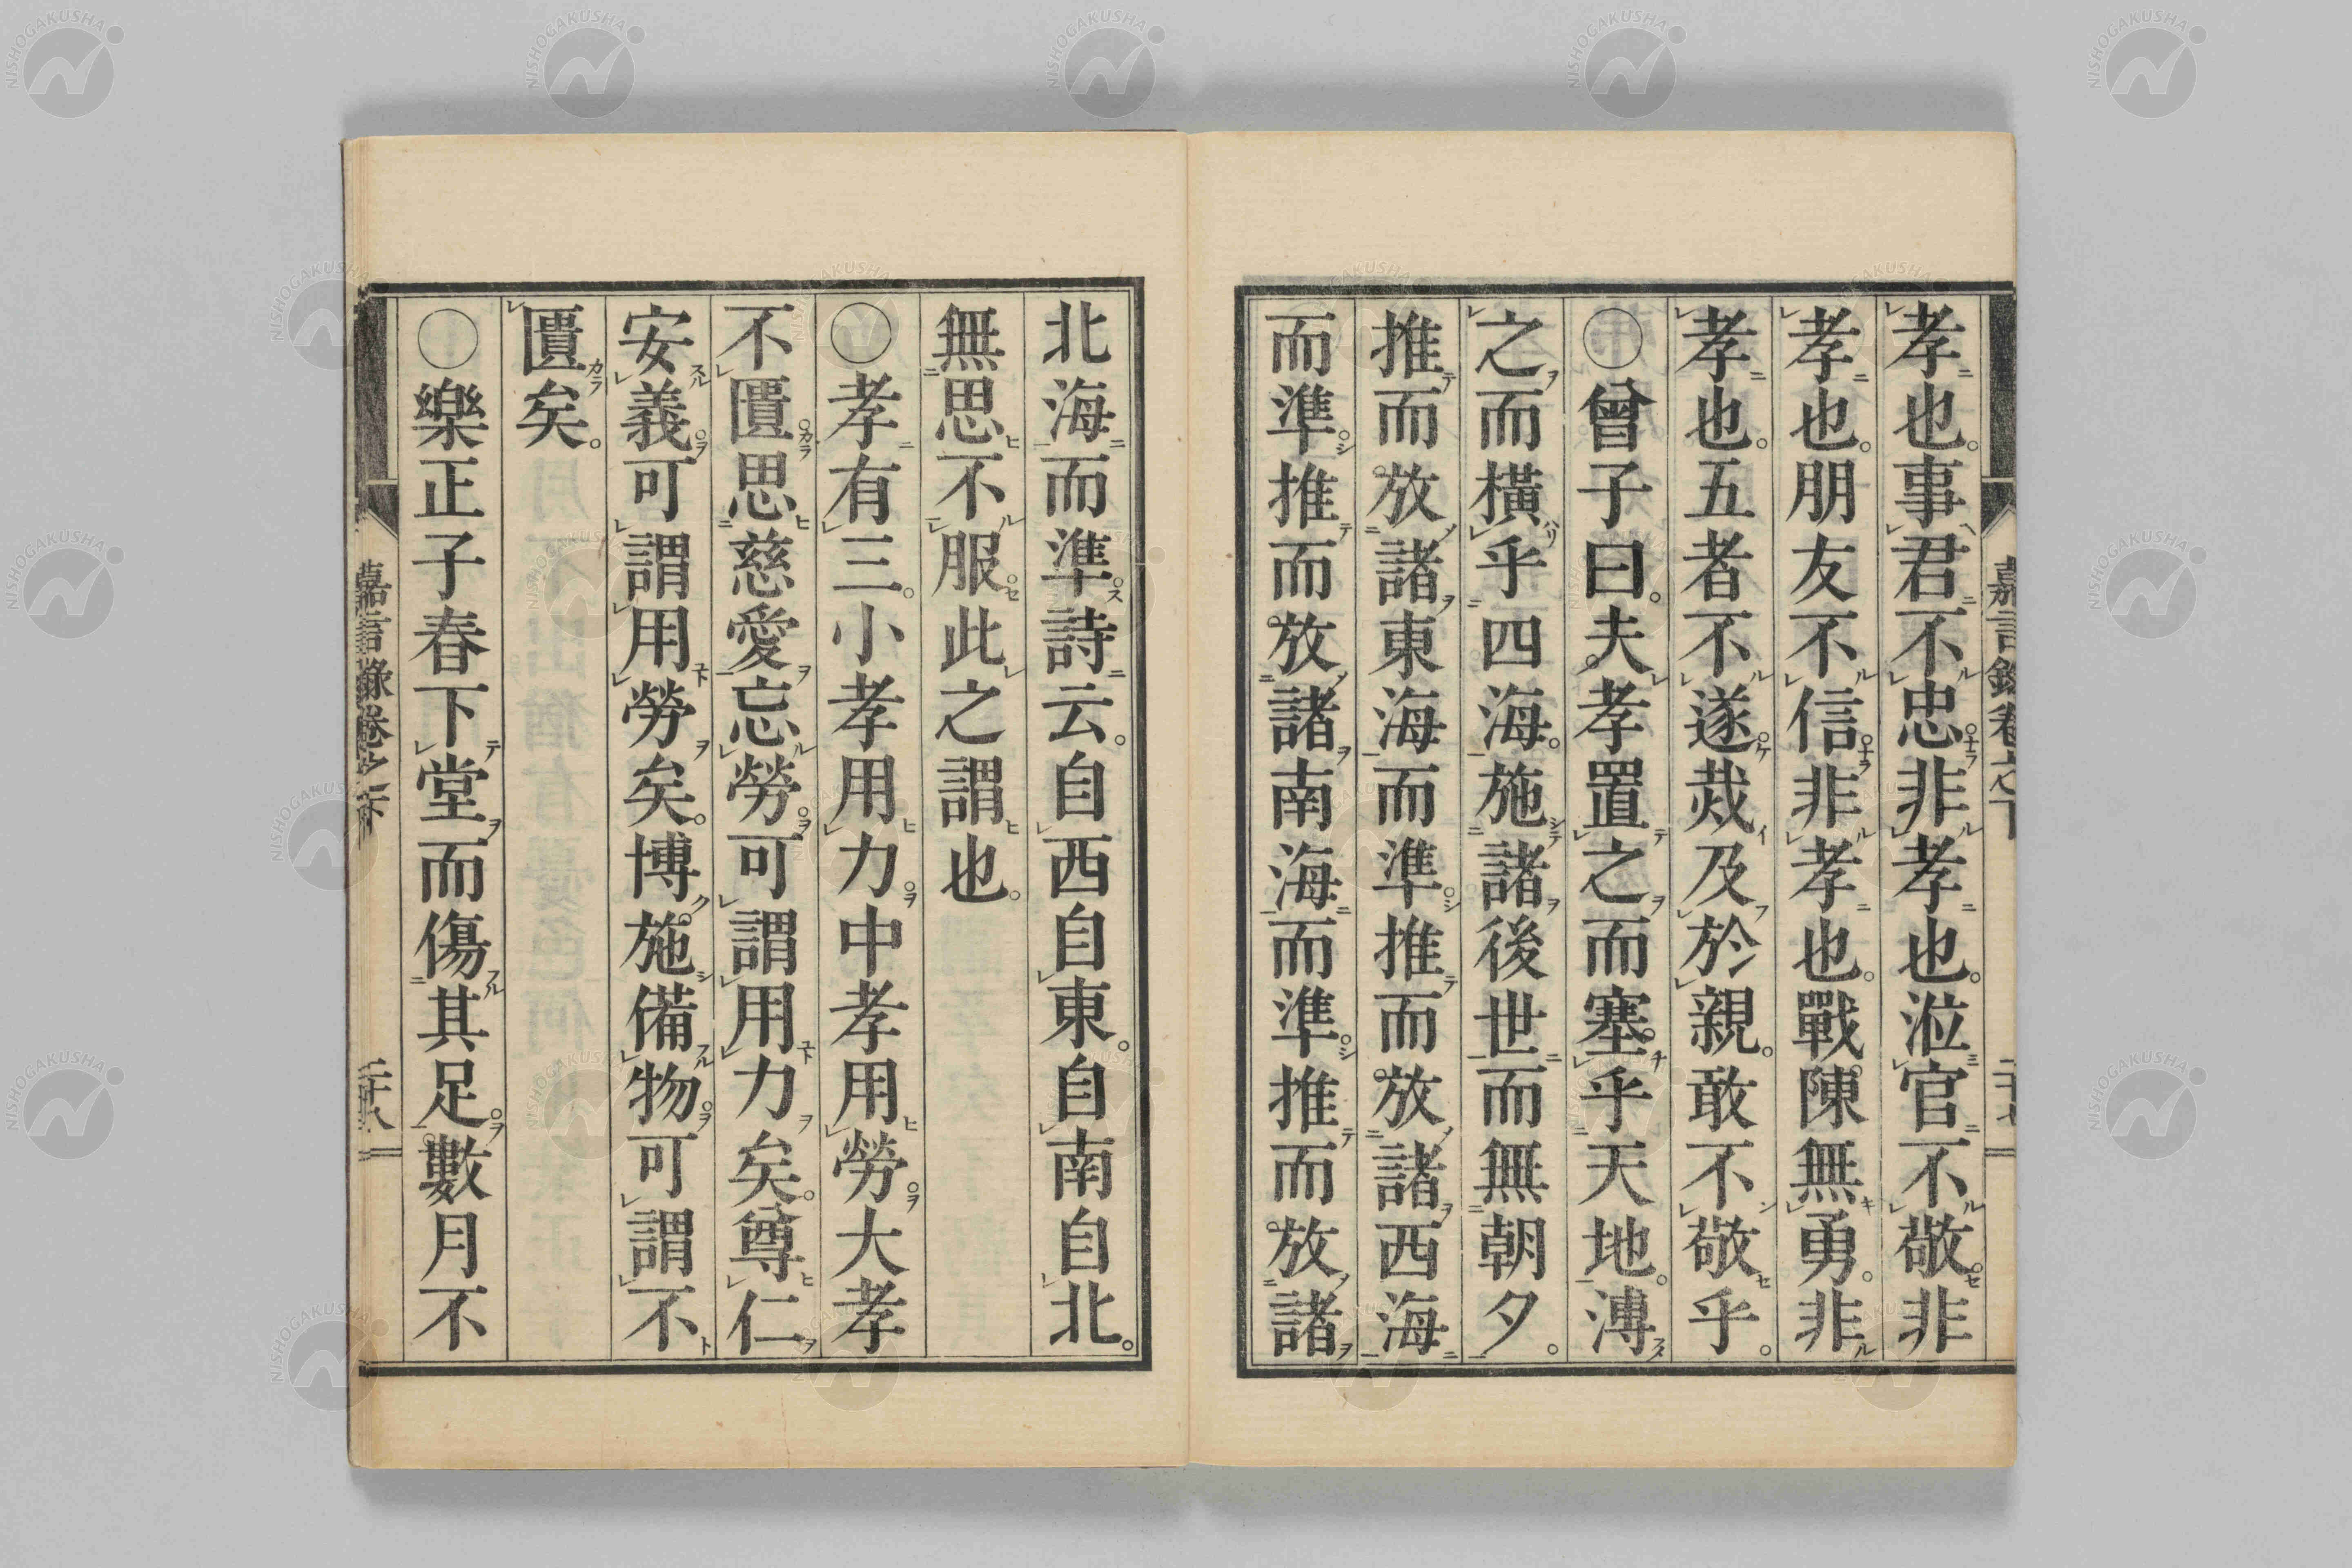 孝也。事君不忠。非孝也。涖官不敬。非
孝也。朋友不信。非孝也。戰陳無勇。非
孝也。五者不遂。烖及於親。敢不敬乎。
〇曾子曰。夫孝置之而塞乎天地。溥
之而橫乎四海。施諸後世而無朝夕。
推而放諸東海而準。推而放諸西海
而準。推而放諸南海而準。推而放諸
北海而準。詩云。自西自東。自南自北。
無思不服。此之謂也。
〇孝有三。小孝用力。中孝用勞。大孝
不匱。思慈愛忘勞。可謂用力矣。尊仁
安義。可謂用勞矣。博施備物。可謂不
匱矣。
〇樂正子春下堂而傷其足。數月不
嘉言錄卷之下
二十七
二十八
NISHOGAKUSHA